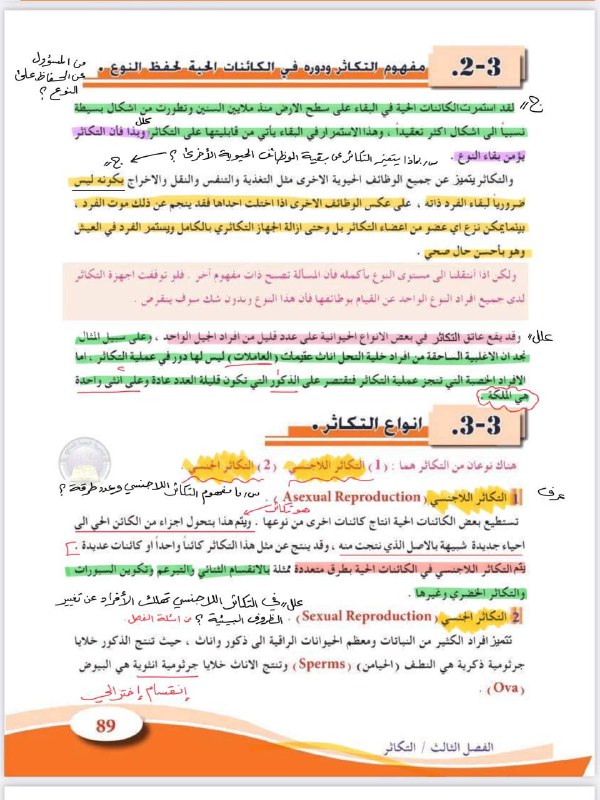 3-2. مفهوم التكاثر ودوره في الكائنات الحية لحفظ النوع .
من المسؤول
عن الحفاظ على
النوع ؟
ج// لقد استمرت الكائنات الحية في البقاء على سطح الارض منذ ملايين السنين وتطورت من اشكال بسيطة
نسبياً الى اشكال اكثر تعقيداً ، وهذا الاستمرار في البقاء يأتي من قابليتها على التكاثر وبذا فأن التكاثر
علل
يؤمن بقاء النوع .
س/ بماذا يتميز التكاثر عن بقية الوظائف الحيوية الأخرى ؟ ج//
والتكاثر يتميز عن جميع الوظائف الحيوية الاخرى مثل التغذية والتنفس والنقل والاخراج بكونه ليس
ضرورياً لبقاء الفرد ذاته ، على عكس الوظائف الاخرى اذا اختلت احداها فقد ينجم عن ذلك موت الفرد ،
بينما يمكن نزع اي عضو من اعضاء التكاثر بل وحتى ازالة الجهاز التكاثري بالكامل ويستمر الفرد في العيش
وهو بأحسن حال صحي .
ولكن اذا أنتقلنا الى مستوى النوع بأكمله فأن المسألة تصبح ذات مفهوم آخر . فلو توقفت اجهزة التكاثر
لدى جميع افراد النوع الواحد عن القيام بوظائفها فأن هذا النوع وبدون شك سوف ينقرض .
علل// وقد يقع عاتق التكاثر في بعض الانواع الحيوانية على عدد قليل من أفراد الجيل الواحد ، وعلى سبيل المثال
نجد ان الاغلبية الساحقة من افراد خلية النحل اناث عقيمات (العاملات) ليس لها دور في عملية التكاثر ، اما
الافراد الخصبة التي تنجز عملية التكاثر فتقتصر على الذكور التي تكون قليلة العدد عادة وعلى انثى واحدة
هي الملكة .
3-3. انواع التكاثر .
هناك نوعان من التكاثر هما : (1) التكاثر اللاجنسي (2) التكاثر الجنسي .
عرف
1 التكاثر اللاجنسي (Asexual Reproduction)
س/ ما مفهوم التكاثر اللاجنسي وعدد طرقه ؟
هو تكاثر
تستطيع بعض الكائنات الحية انتاج كائنات اخرى من نوعها . ويتم هذا بتحول اجزاء من الكائن الحي الى
احياء جديدة شبيهة بالاصل الذي نتجت منه ، وقد ينتج عن مثل هذا التكاثر كائناً واحداً او كائنات عديدة .
يتم التكاثر اللاجنسي في الكائنات الحية بطرق متعددة ممثلة بالانقسام الثنائي والتبرعم وتكوين السبورات
والتكاثر الخضري وغيرها .
علل// في التكاثر اللاجنسي تهلك الأفراد عن تغيير
الظروف البيئية ؟ من اسئلة الفصل
2 التكاثر الجنسي (Sexual Reproduction)
تتميز افراد الكثير من النباتات ومعظم الحيوانات الراقية الى ذكور واناث ، حيث تنتج الذكور خلايا
جرثومية ذكرية هي النطف (الحيامن) (Sperms) وتنتج الاناث خلايا جرثومية انثوية هي البيوض
(Ova) .
إنقسام إختزالي
89
الفصل الثالث / التكاثر